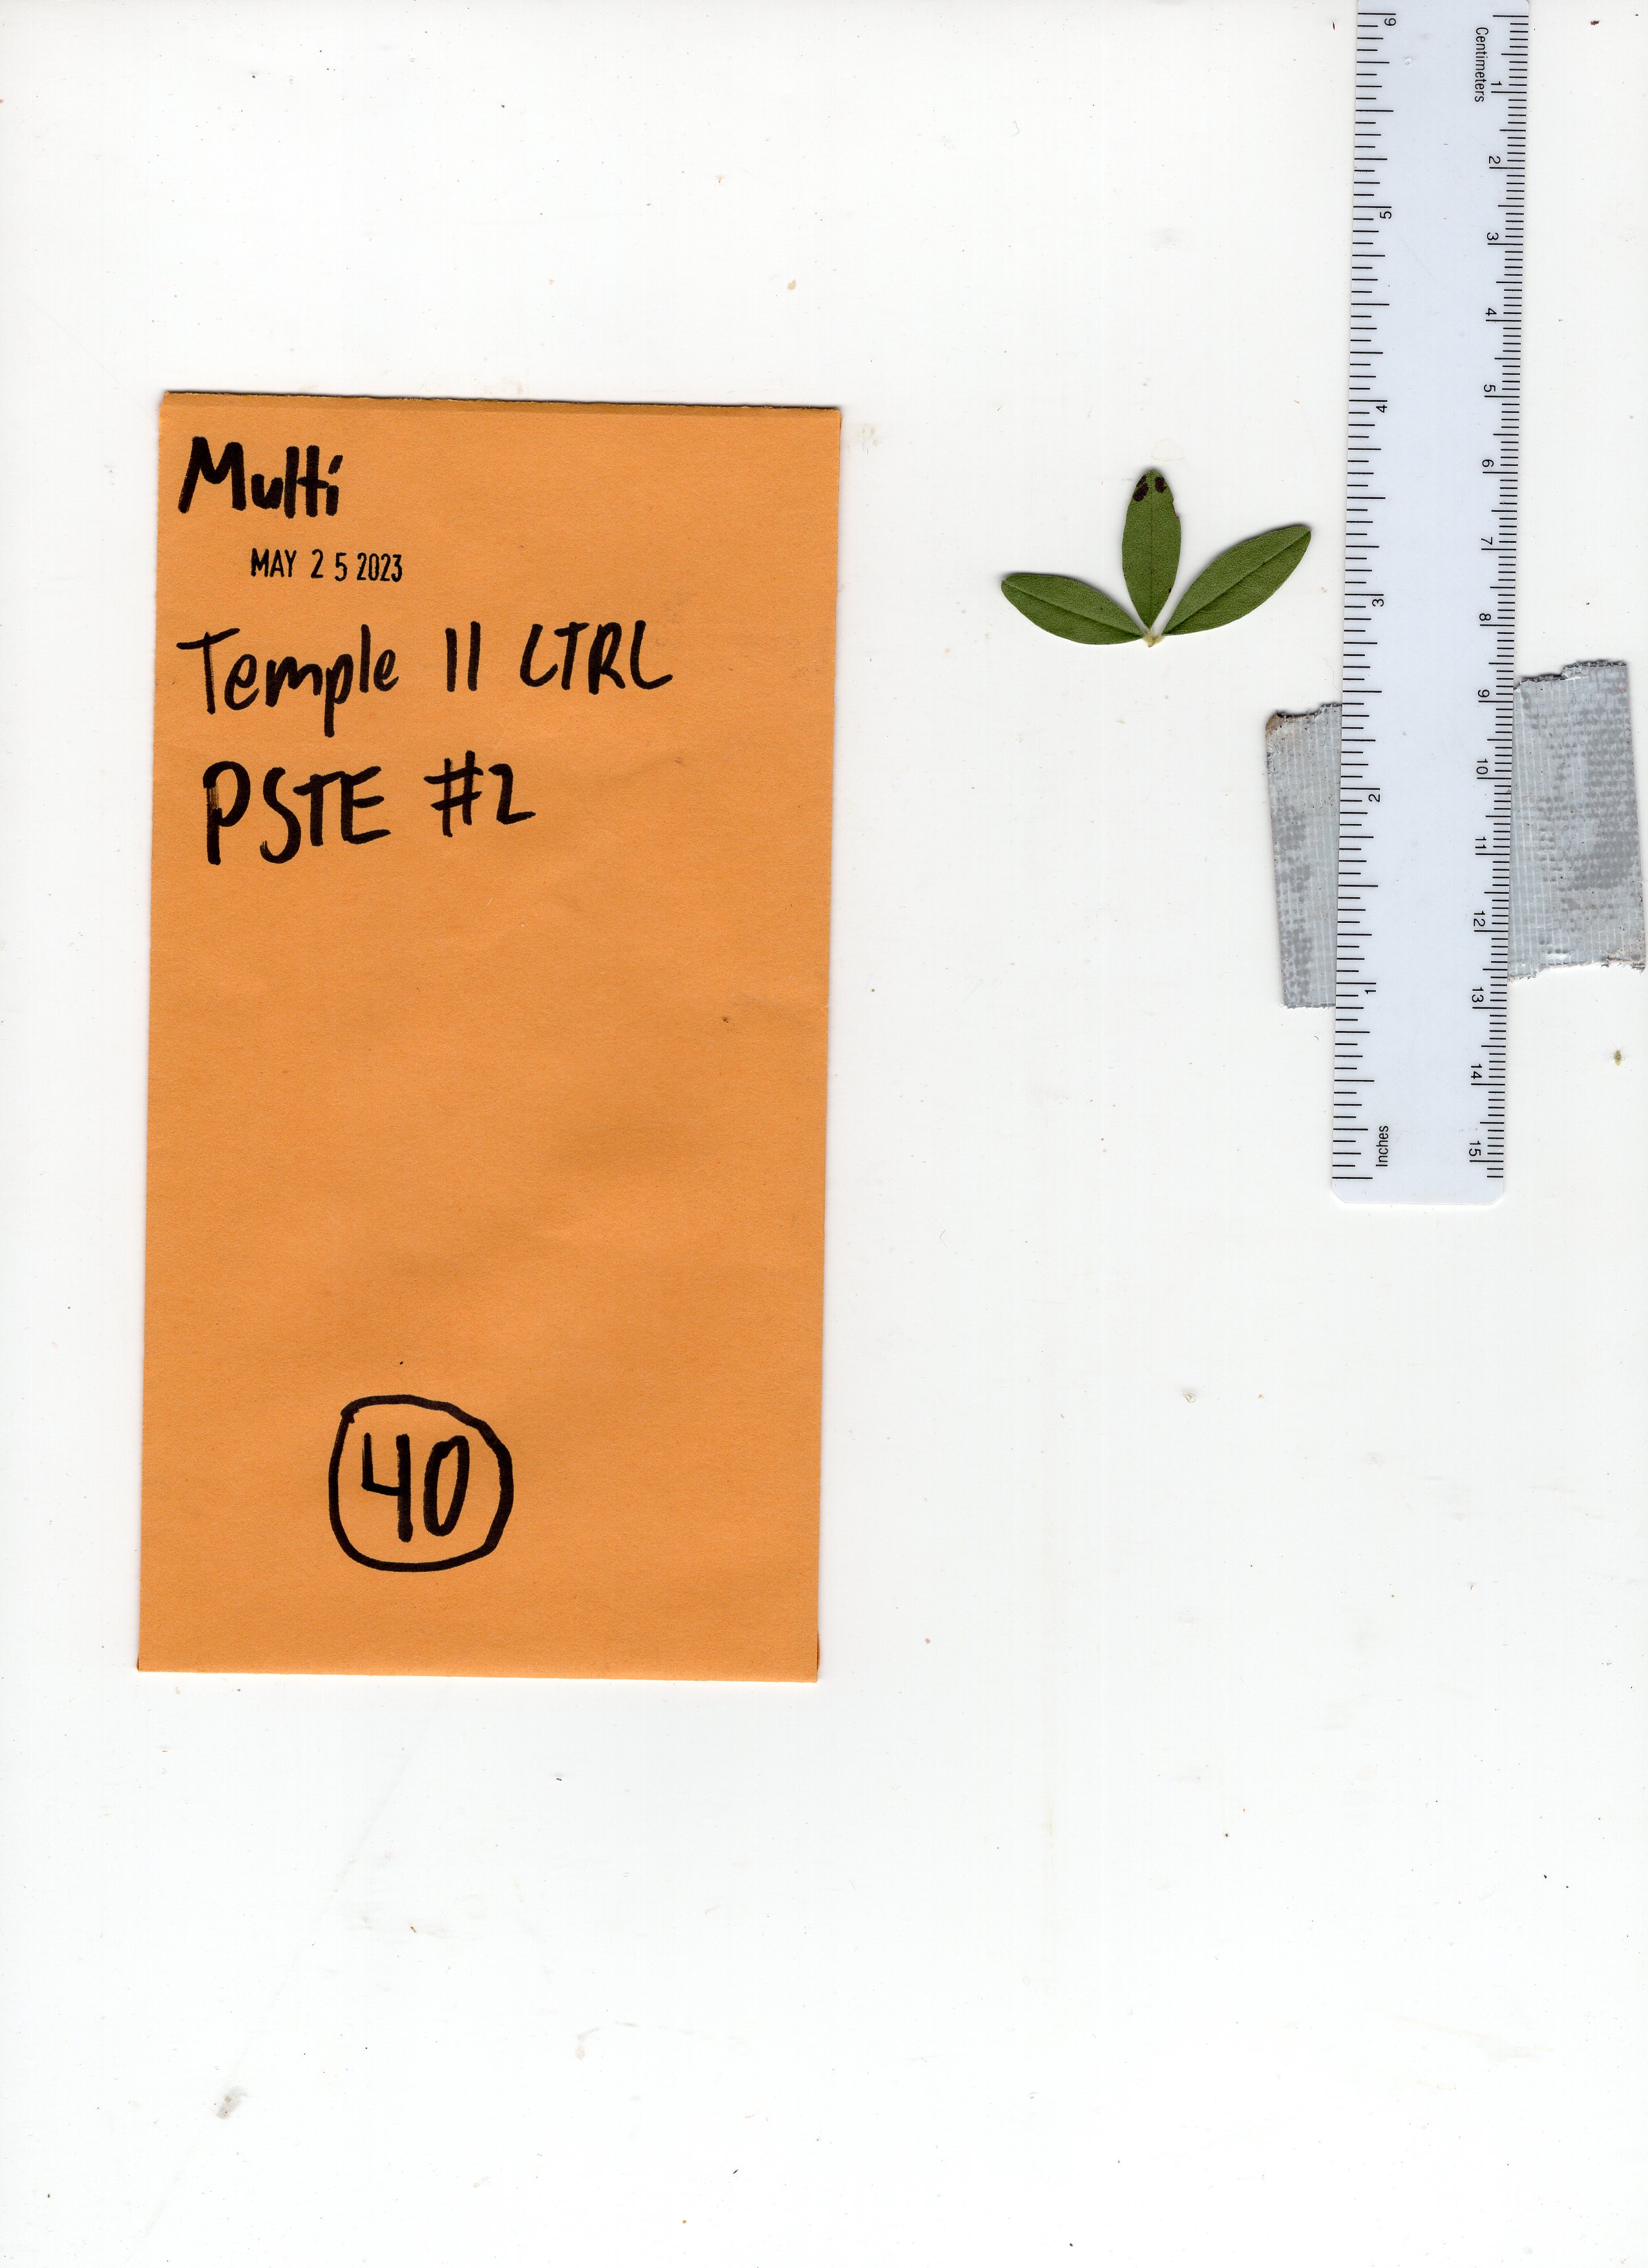 Multi
MAY 25 2023
Temple 11 CTRL
PSTE #2
40
Centimeters
1 2 3 4 5 6 7 8 9 10 11 12 13 14 15
6 5 4 3 2 1
Inches